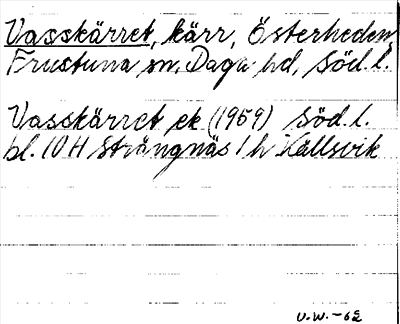 Vasskärret, kärr, Österheden,
Frustuna sn, Daga hd, Söd. l.
Vasskärret ek (1959) Söd. l.
bl. 10 H Strängnäs 1 h Källsvik
U.W.-62